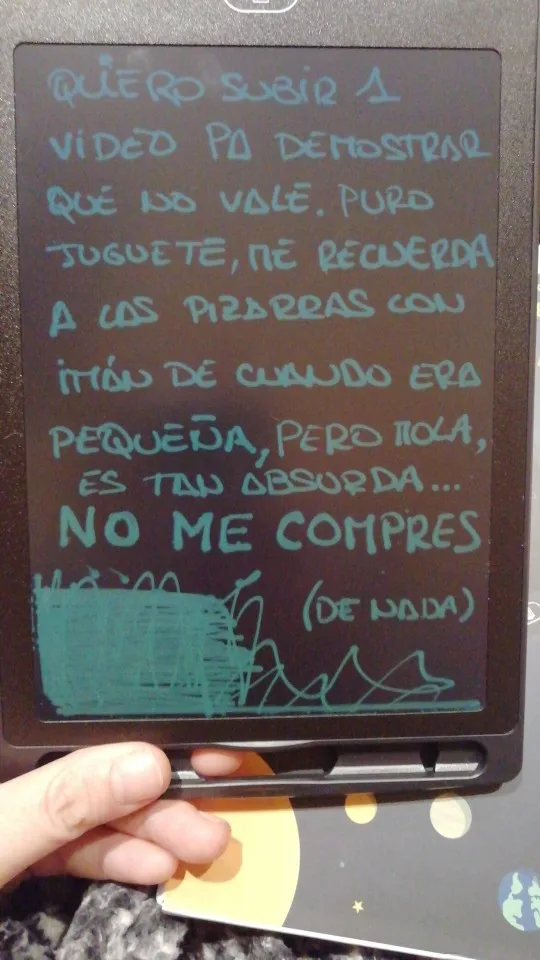 QUIERO SUBIR 1
VIDEO PA DEMOSTRAR
QUE NO VALE. PURO
JUGUETE, ME RECUERDA
A LAS PIZARRAS CON
IMÁN DE CUANDO ERA
PEQUEÑA, PERO MOLA,
ES TAN ABSURDA...
NO ME COMPRES
(DE NADA)